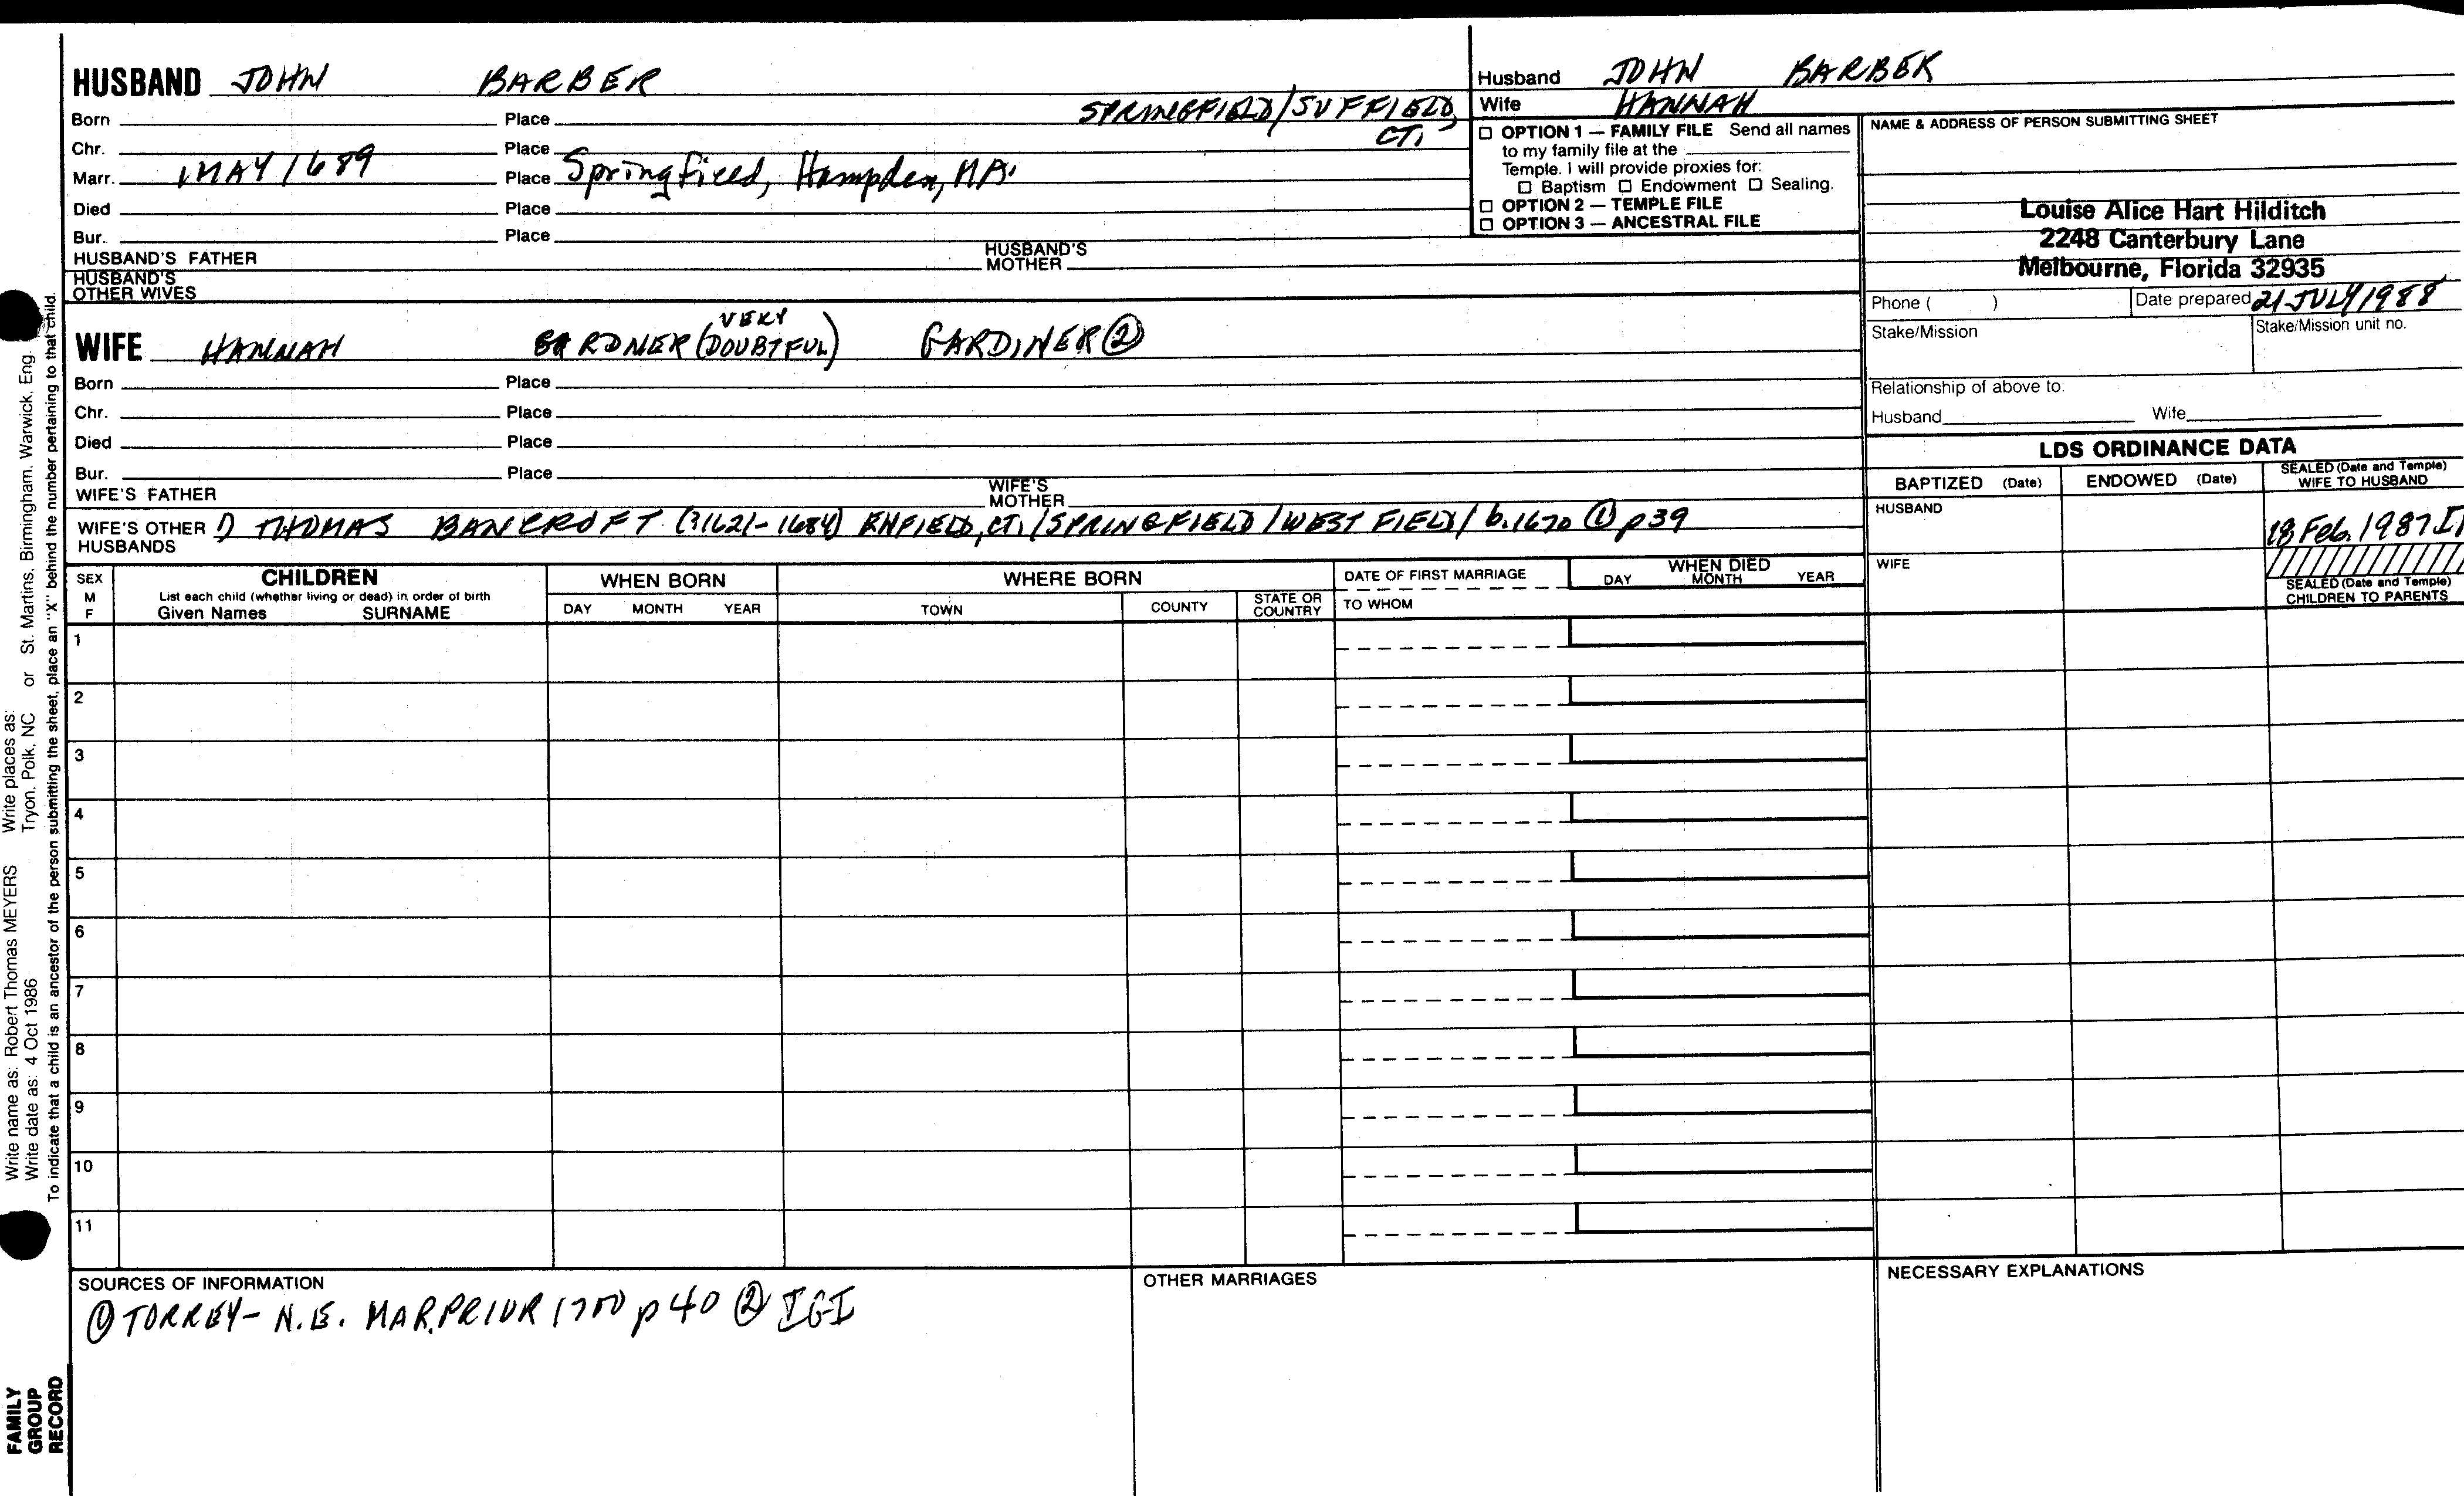 HUSBAND JOHN BARBER
Born Place SPRINGFIELD/SUFFIELD,
Chr. Place CT.
Marr. MAY 1689 Place Springfield, Hampden, MA.
Died Place
Bur. Place
HUSBAND'S FATHER HUSBAND'S MOTHER
HUSBAND'S OTHER WIVES
Husband JOHN BARBER
Wife HANNAH
☐ OPTION 1 — FAMILY FILE Send all names
to my family file at the
Temple. I will provide proxies for:
☐ Baptism ☐ Endowment ☐ Sealing.
☐ OPTION 2 — TEMPLE FILE
☐ OPTION 3 — ANCESTRAL FILE
NAME & ADDRESS OF PERSON SUBMITTING SHEET
Louise Alice Hart Hilditch
2248 Canterbury Lane
Melbourne, Florida 32935
Phone ( ) Date prepared 21 JULY 1988
Stake/Mission Stake/Mission unit no.
Relationship of above to:
Husband Wife
VERY
WIFE HANNAH GARDNER (DOUBTFUL) GARDINER ②
Born Place
Chr. Place
Died Place
Bur. Place
WIFE'S FATHER WIFE'S MOTHER
WIFE'S OTHER HUSBANDS 1) THOMAS BANCROFT (?1621-1684) ENFIELD, CT./SPRINGFIELD/WESTFIELD/ b.1670 ① p39
LDS ORDINANCE DATA
BAPTIZED (Date) ENDOWED (Date) SEALED (Date and Temple) WIFE TO HUSBAND
HUSBAND 18 Feb. 1987
WIFE
SEALED (Date and Temple) CHILDREN TO PARENTS
SEX M F
CHILDREN
List each child (whether living or dead) in order of birth
Given Names SURNAME
WHEN BORN
DAY MONTH YEAR
WHERE BORN
TOWN COUNTY STATE OR COUNTRY
DATE OF FIRST MARRIAGE
TO WHOM
WHEN DIED
DAY MONTH YEAR
1
2
3
4
5
6
7
8
9
10
11
SOURCES OF INFORMATION
① TORREY- N.E. MAR. PRIOR 1700 p 40 ② IGI
OTHER MARRIAGES
NECESSARY EXPLANATIONS
Write name as: Robert Thomas MEYERS Write places as:
Write date as: 4 Oct 1986 Tryon, Polk, NC or St. Martins, Birmingham, Warwick, Eng.
To indicate that a child is an ancestor of the person submitting the sheet, place an "X" behind the number pertaining to that child.
FAMILY
GROUP
RECORD